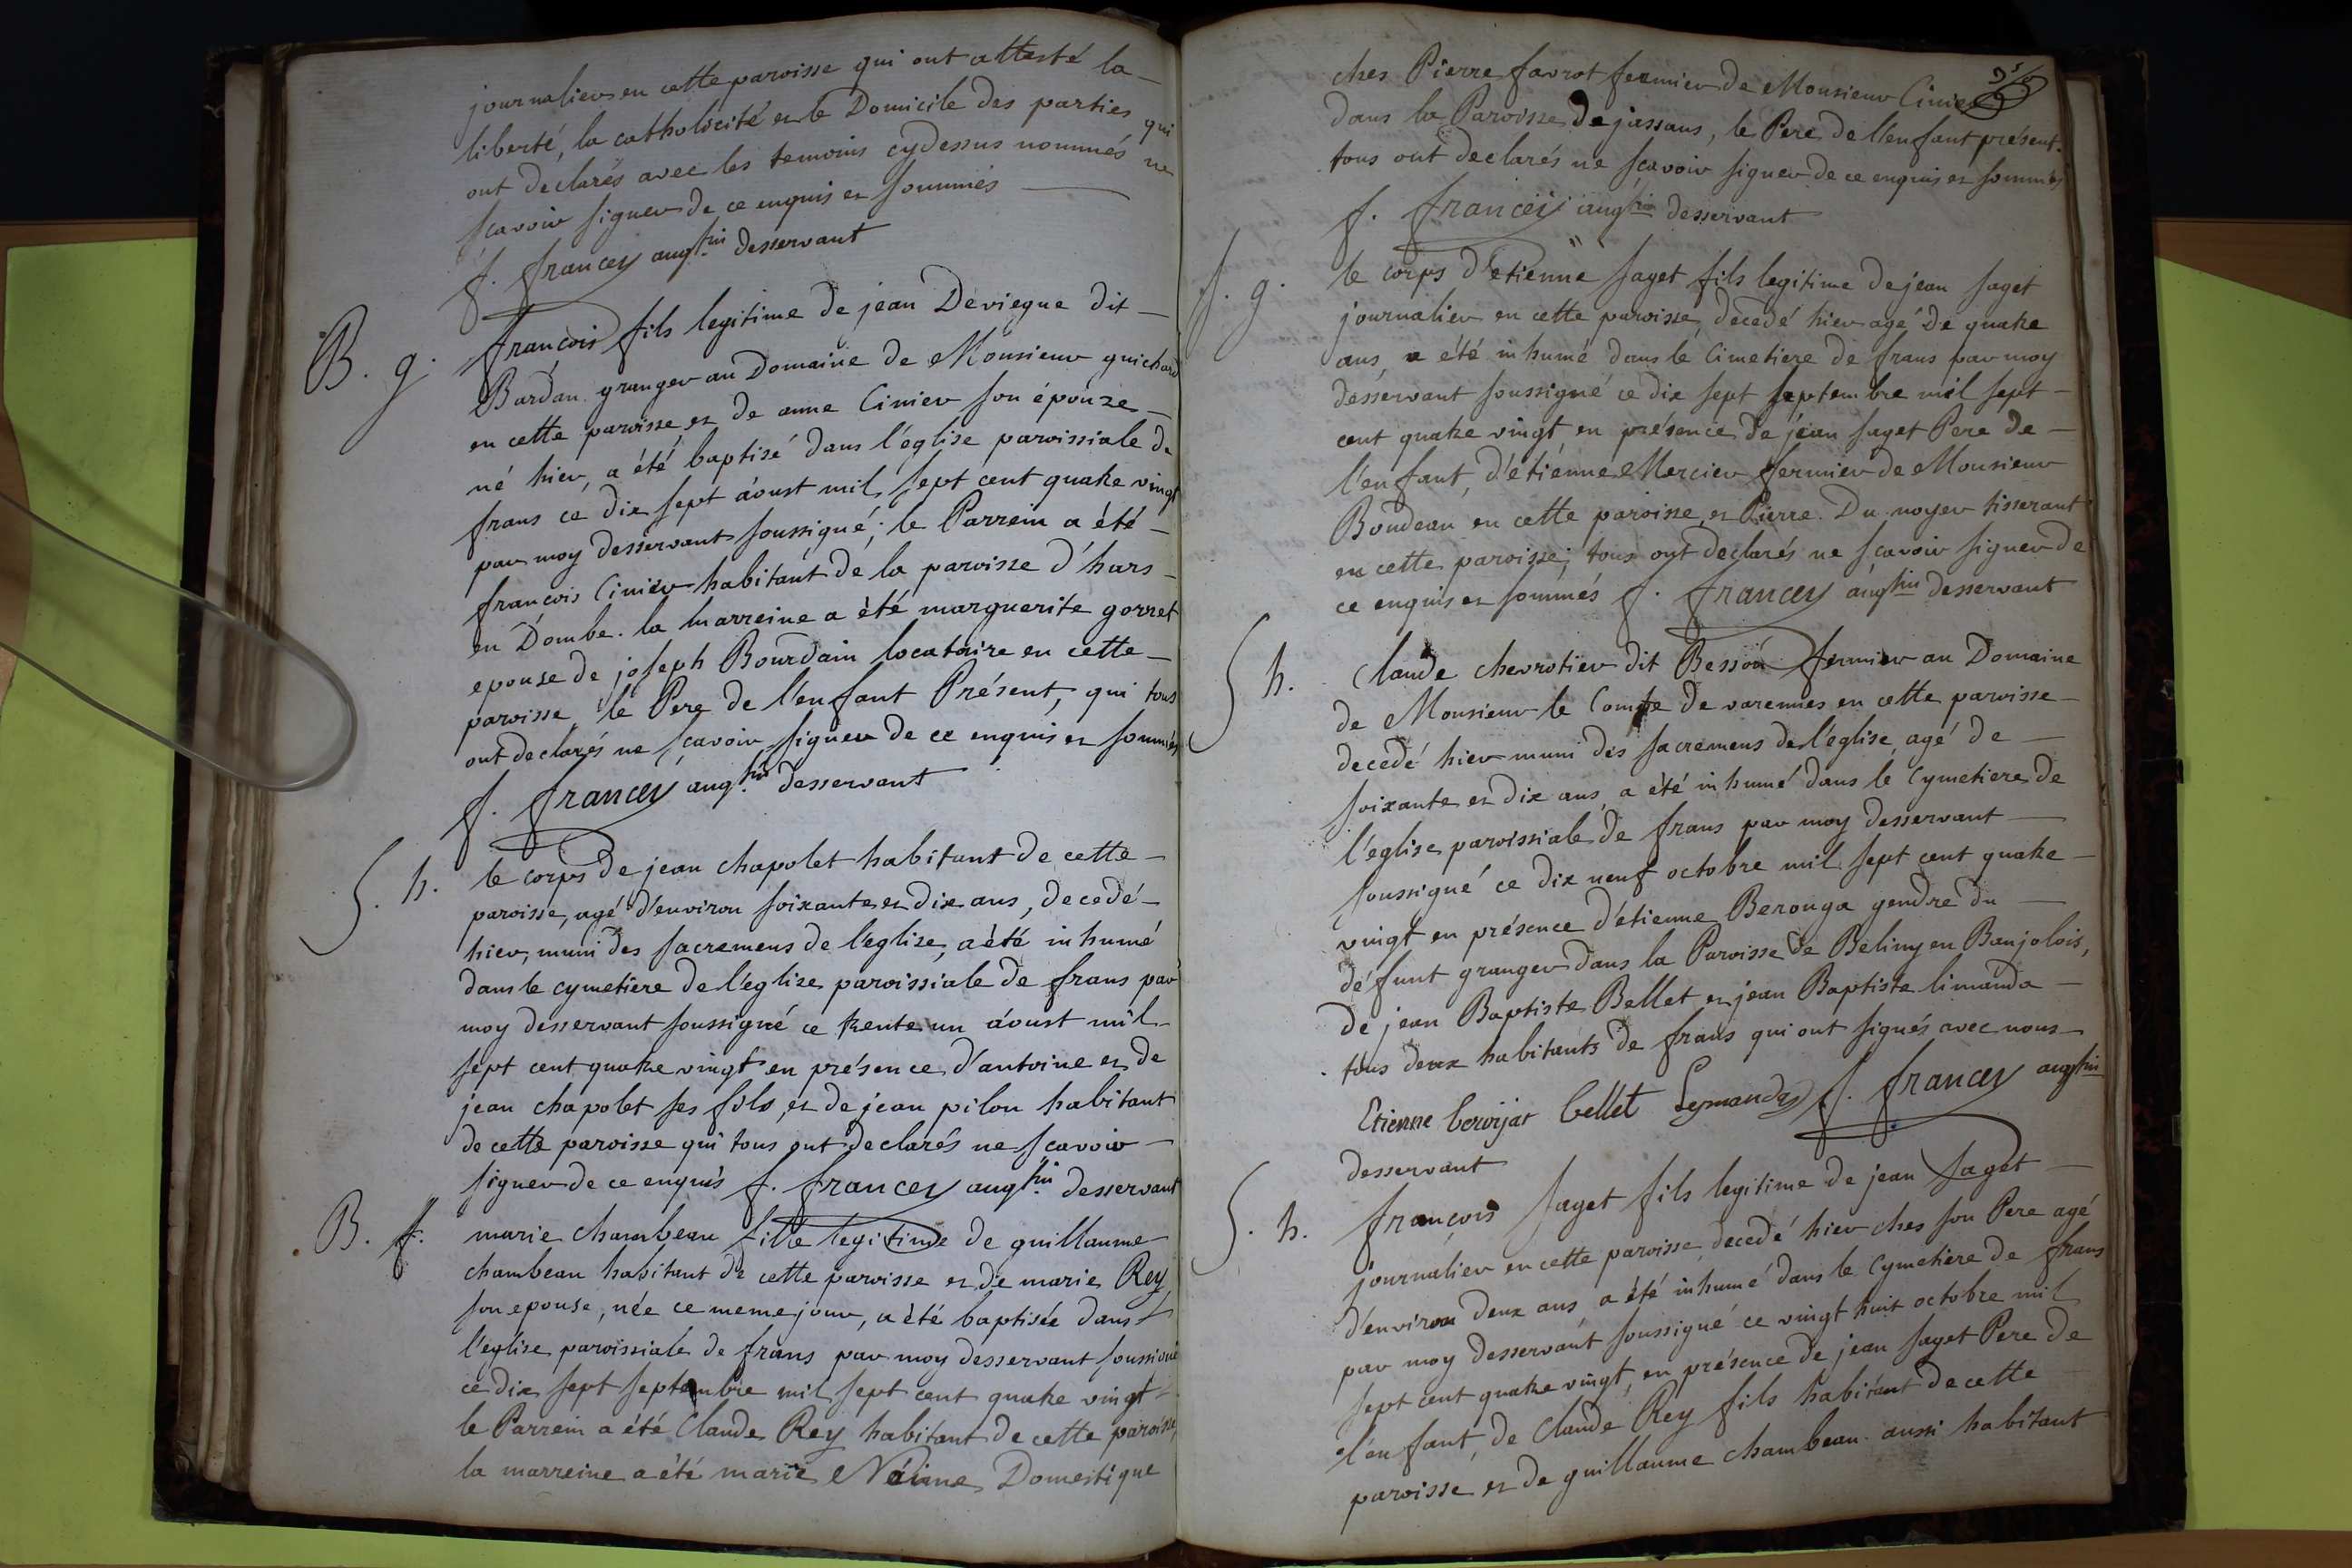 journalier en cette paroisse qui ont attesté la
liberté, la catholicité et le Domicile des parties qui
ont declarés avec les temoins cydessus nommés ne
sçavoir signer de ce enquis et sommés
f. francey augtin desservant
B. g. françois fils legitime de jean Deviegue dit
Bardan granger au Domaine de Monsieur guichard
en cette paroisse et de anne Cinier son épouze
né hier, a été baptisé dans l'église paroissiale de
frans ce dix sept aoust mil sept cent quatre vingt
par moy desservant soussigné; le Parrein a été
françois Cinier habitant de la paroisse d'hars
en Dombe. la marreine a été marguerite gorret
epouse de joseph Bourdain locataire en cette
paroisse, le Pere de l'enfant Présent, qui tous
ont declarés ne sçavoir signer de ce enquis et sommés
f. francey augtin desservant
S. h. le corps de jean chapolet habitant de cette
paroisse, agé d'environ soixante et dix ans, decedé
hier, muni des sacremens de l'eglise, a été inhumé
dans le cymetiere de l'église paroissiale de frans par
moy desservant soussigné ce trente un aoust mil
sept cent quatre vingt en présence d'antoine et de
jean chapolet ses fils, et de jean pilon habitant
de cette paroisse qui tous ont declarés ne sçavoir
signer de ce enquis f. francey augtin desservant
B. f. marie chambeau fille legitime de guillaume
chambeau habitant de cette paroisse et de marie Rey
son epouse, née ce meme jour, a été baptisée dans
l'eglise paroissiale de frans par moy desservant soussigné
ce dix sept septembre mil sept cent quatre vingt
le Parrein a été Claude Rey habitant de cette paroisse,
la marreine a été marie Domestique
ches Pierre favrot fermier de Monsieur Cinier
dans la Paroisse de jassans, le Pere de l'enfant présent.
tous ont declarés ne sçavoir signer de ce enquis et sommés
f. francey augtin desservant
S. g. le corps d'etienne saget fils legitime de jean saget
journalier en cette paroisse, décedé hier agé de quatre
ans, a été inhumé dans le Cimetiere de frans par moy
desservant soussigné ce dix sept septembre mil sept
cent quatre vingt en présence de jean saget Pere de
l'enfant, d'étienne Mercier fermier de Monsieur
Boudeau en cette paroisse, et Pierre Du noyer tisserant
en cette paroisse; tous ont declarés ne sçavoir signer de
ce enquis et sommés f. francey augtin desservant
S h. Claude chevrotier dit Besson fermier au Domaine
de Monsieur le Comte de varennes en cette paroisse
decedé hier muni des sacremens de l'église, agé de
soixante et dix ans, a été inhumé dans le Cymetiere de
l'eglise paroissiale de frans par moy desservant
soussigné ce dix neuf octobre mil sept cent quatre
vingt en présence d'étienne Berouga gendre du
défunt granger dans la Paroisse de Beligny en Baujolois,
de jean Baptiste Bellet et jean Baptiste limanda
tous deux habitants de frans qui ont signés avec nous
Etienne beroijat bellet Lymandas f. francey augtin
desservant
S. h. françois saget fils legitime de jean saget
journalier en cette paroisse, decedé hier ches son Pere agé
d'environ deux ans a été inhumé dans le Cymetiere de frans
par moy desservant soussigné ce vingt huit octobre mil
sept cent quatre vingt, en présence de jean saget Pere de
l'enfant, de Claude Rey fils habitant de cette
paroisse et de guillaume chambeau aussi habitant